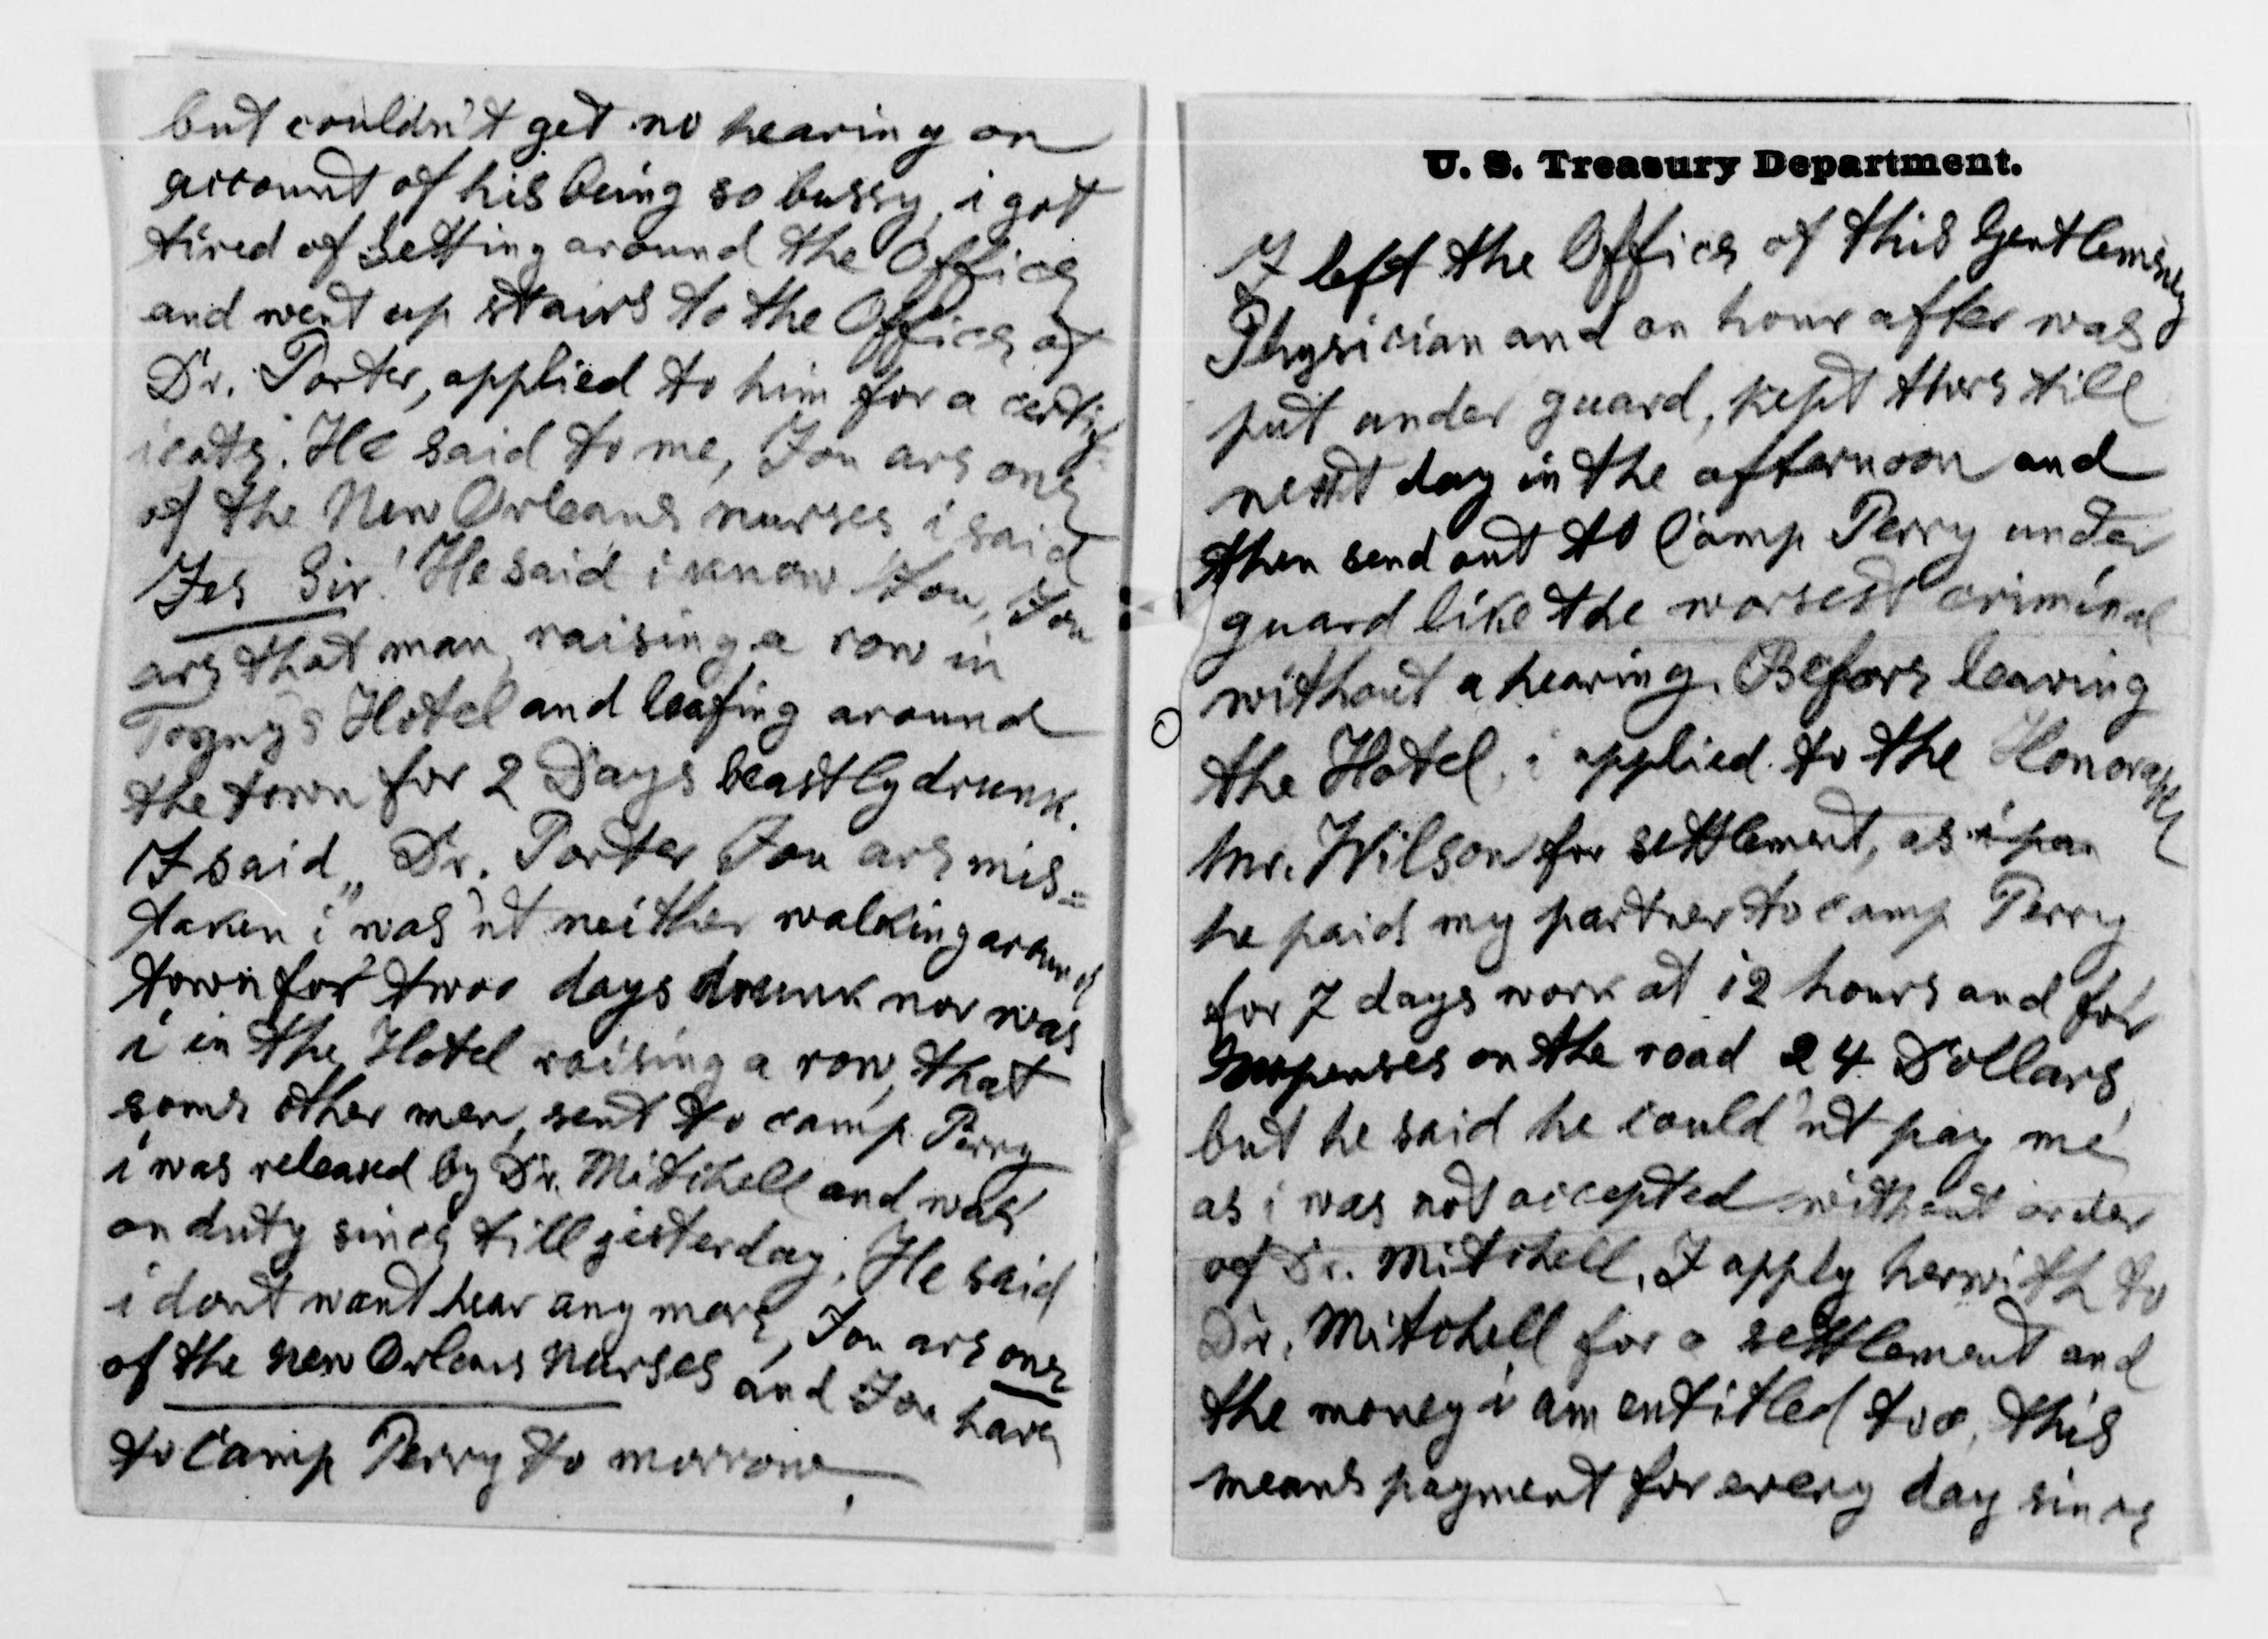 but couldn't get no hearing on
account of his being so bussy, i got
tired of setting around the Office
and went up stairs to the Office of
Dr. Porter, applied to him for a certif-
icate. He said to me, You are one
of the New Orleans nurses i said
Yes Sir! He said i know You, You
are that man, raising a row in
Hotel and loafing around
the town for 2 Days beastly drunk.
I said „ Dr. Porter You are mis=
taken i was'nt neither walking around
town for twoo days drunk nor was
i in the Hotel raising a row, that
some other men, sent to camp Perry
i was released by Dr. Mitchell and was
on duty since till yisterday. He said
i dont want hear any more, You are one
of the New Orleans Nurses and You have
to Camp Perry to morrow.
U. S. Treasury Department.
I left the Office of this Gentlemeny
Physician and an hour after was
put under guard, kept there till
next day in the afternoon and
then send out to Camp Perry under
guard like the worsest criminal
without a hearing. Before leaving
the Hotel, i applied to the Honorable
Mr. Wilson for settlement, as i pa
he paid my partner to camp Perry
for 7 days work at 12 hours and for
expenses on the road 24 Dollars,
but he said he could'nt pay me
as i was not accepted without order
of Dr. Mitchell, I apply herwith to
Dr. Mitchell for a settlement and
the money i am entitled too, this
means payment for every day since